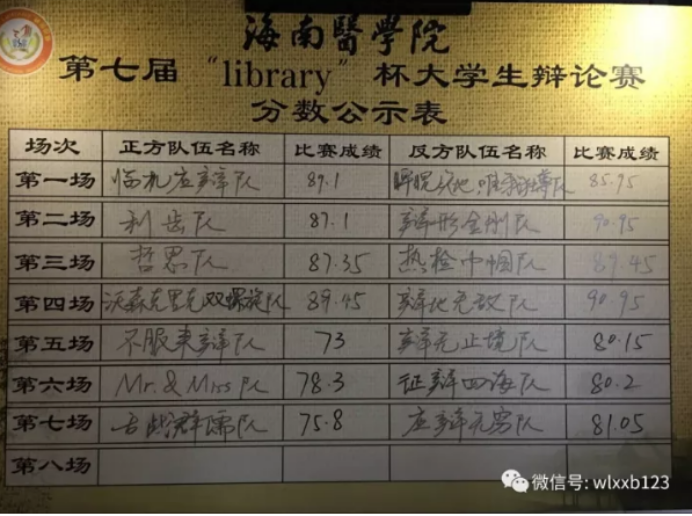 海南醫學院
第七届“library”杯大学生辩论赛
分数公示表
场次 正方队伍名称 比赛成绩 反方队伍名称 比赛成绩
第一场 临机应辩队 89.1 队 85.95
第二场 利齿队 87.1 辩形金刚队 90.95
第三场 哲思队 87.35 热检巾帼队 89.45
第四场 沃森克里克双螺旋队 89.45 辩地无敌队 90.95
第五场 不服来辩队 73 辩无止境队 80.15
第六场 Mr.&Miss队 78.3 征辩四海队 80.2
第七场 舌战群儒队 75.8 应辩无穷队 81.05
第八场
微信号: wlxxb123